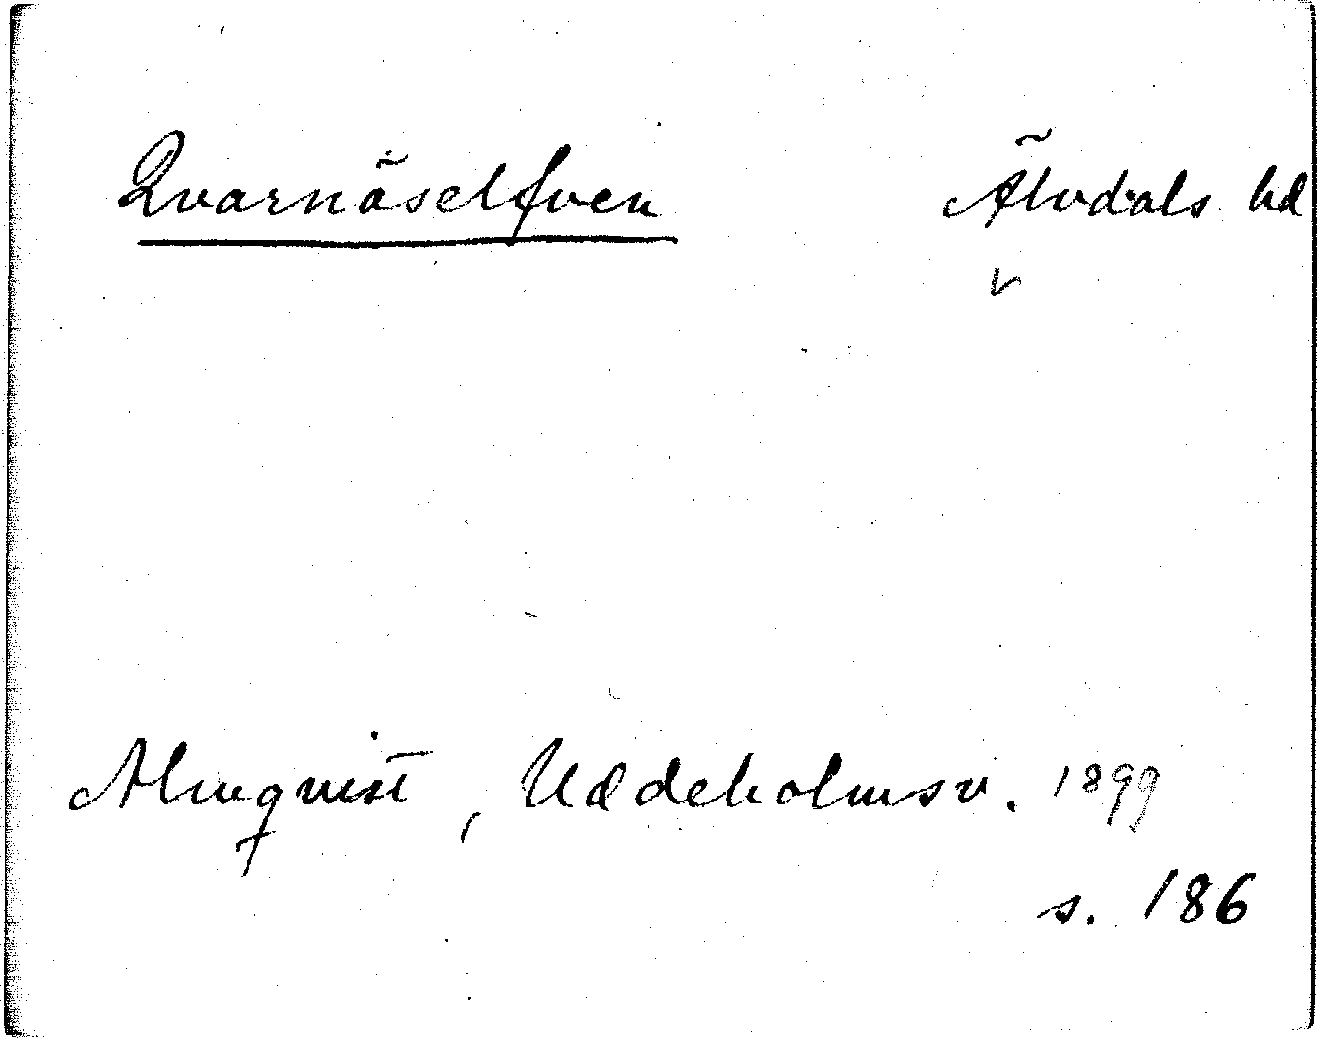 Qvarnäselfven Älvdals hd
v
Almqvist, Uddeholmsv. 1899
s. 186